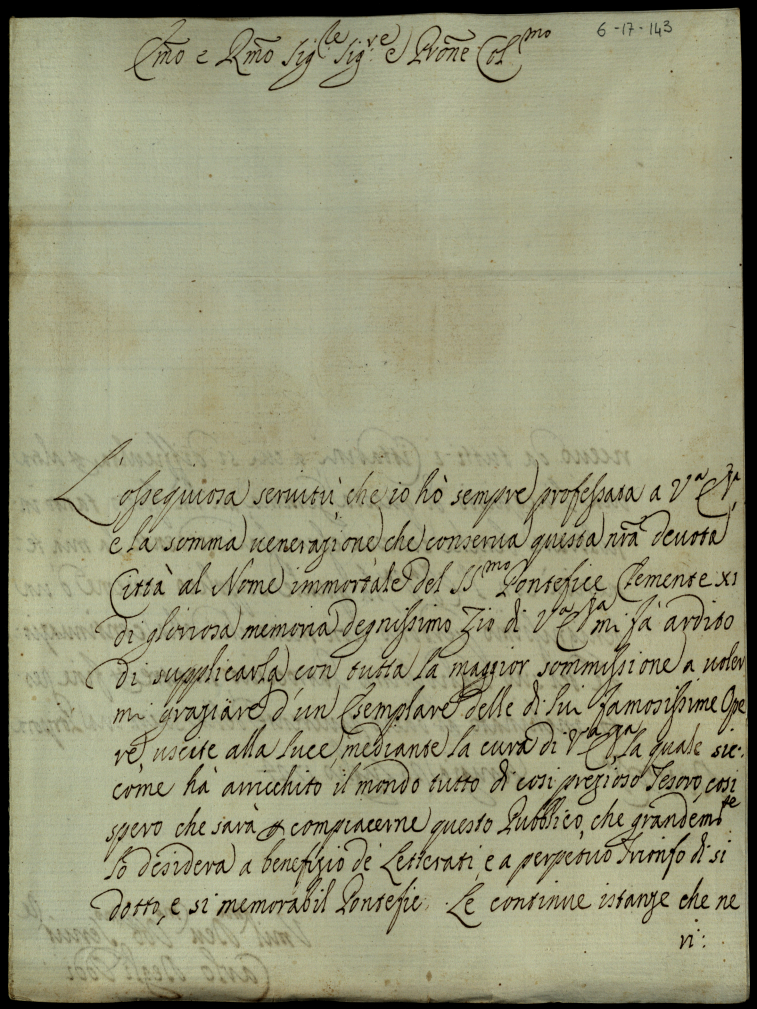 6-17-143
Emo e Rmo Sigle Sigre e Prone Colmo
L'ossequiosa seruitù che io hò sempre professata a Va Eza,
e la somma uenerazione che conserua questa nrã deuota
Città al Nome immortale del SSmo Pontefice Clemente XI
di gloriosa memoria degnissimo Zio di Va Eza mi fà ardito
di supplicarla con tutta la maggior sommissione a uoler
mi graziare d'un Esemplare delle di lui famosissime Ope
re, uscite alla luce mediante la cura di Va Eza, la quale sic-
come hà arricchito il mondo tutto di cosi prezioso Tesoro, cosi
spero che sarà p compiacerne questo Pubblico, che grandemte
lo desidera a benefizio de' Letterati, e a perpetuo Trionfo di si
dotto, e si memorabil Pontefice. Le continue istanze che ne
ri: